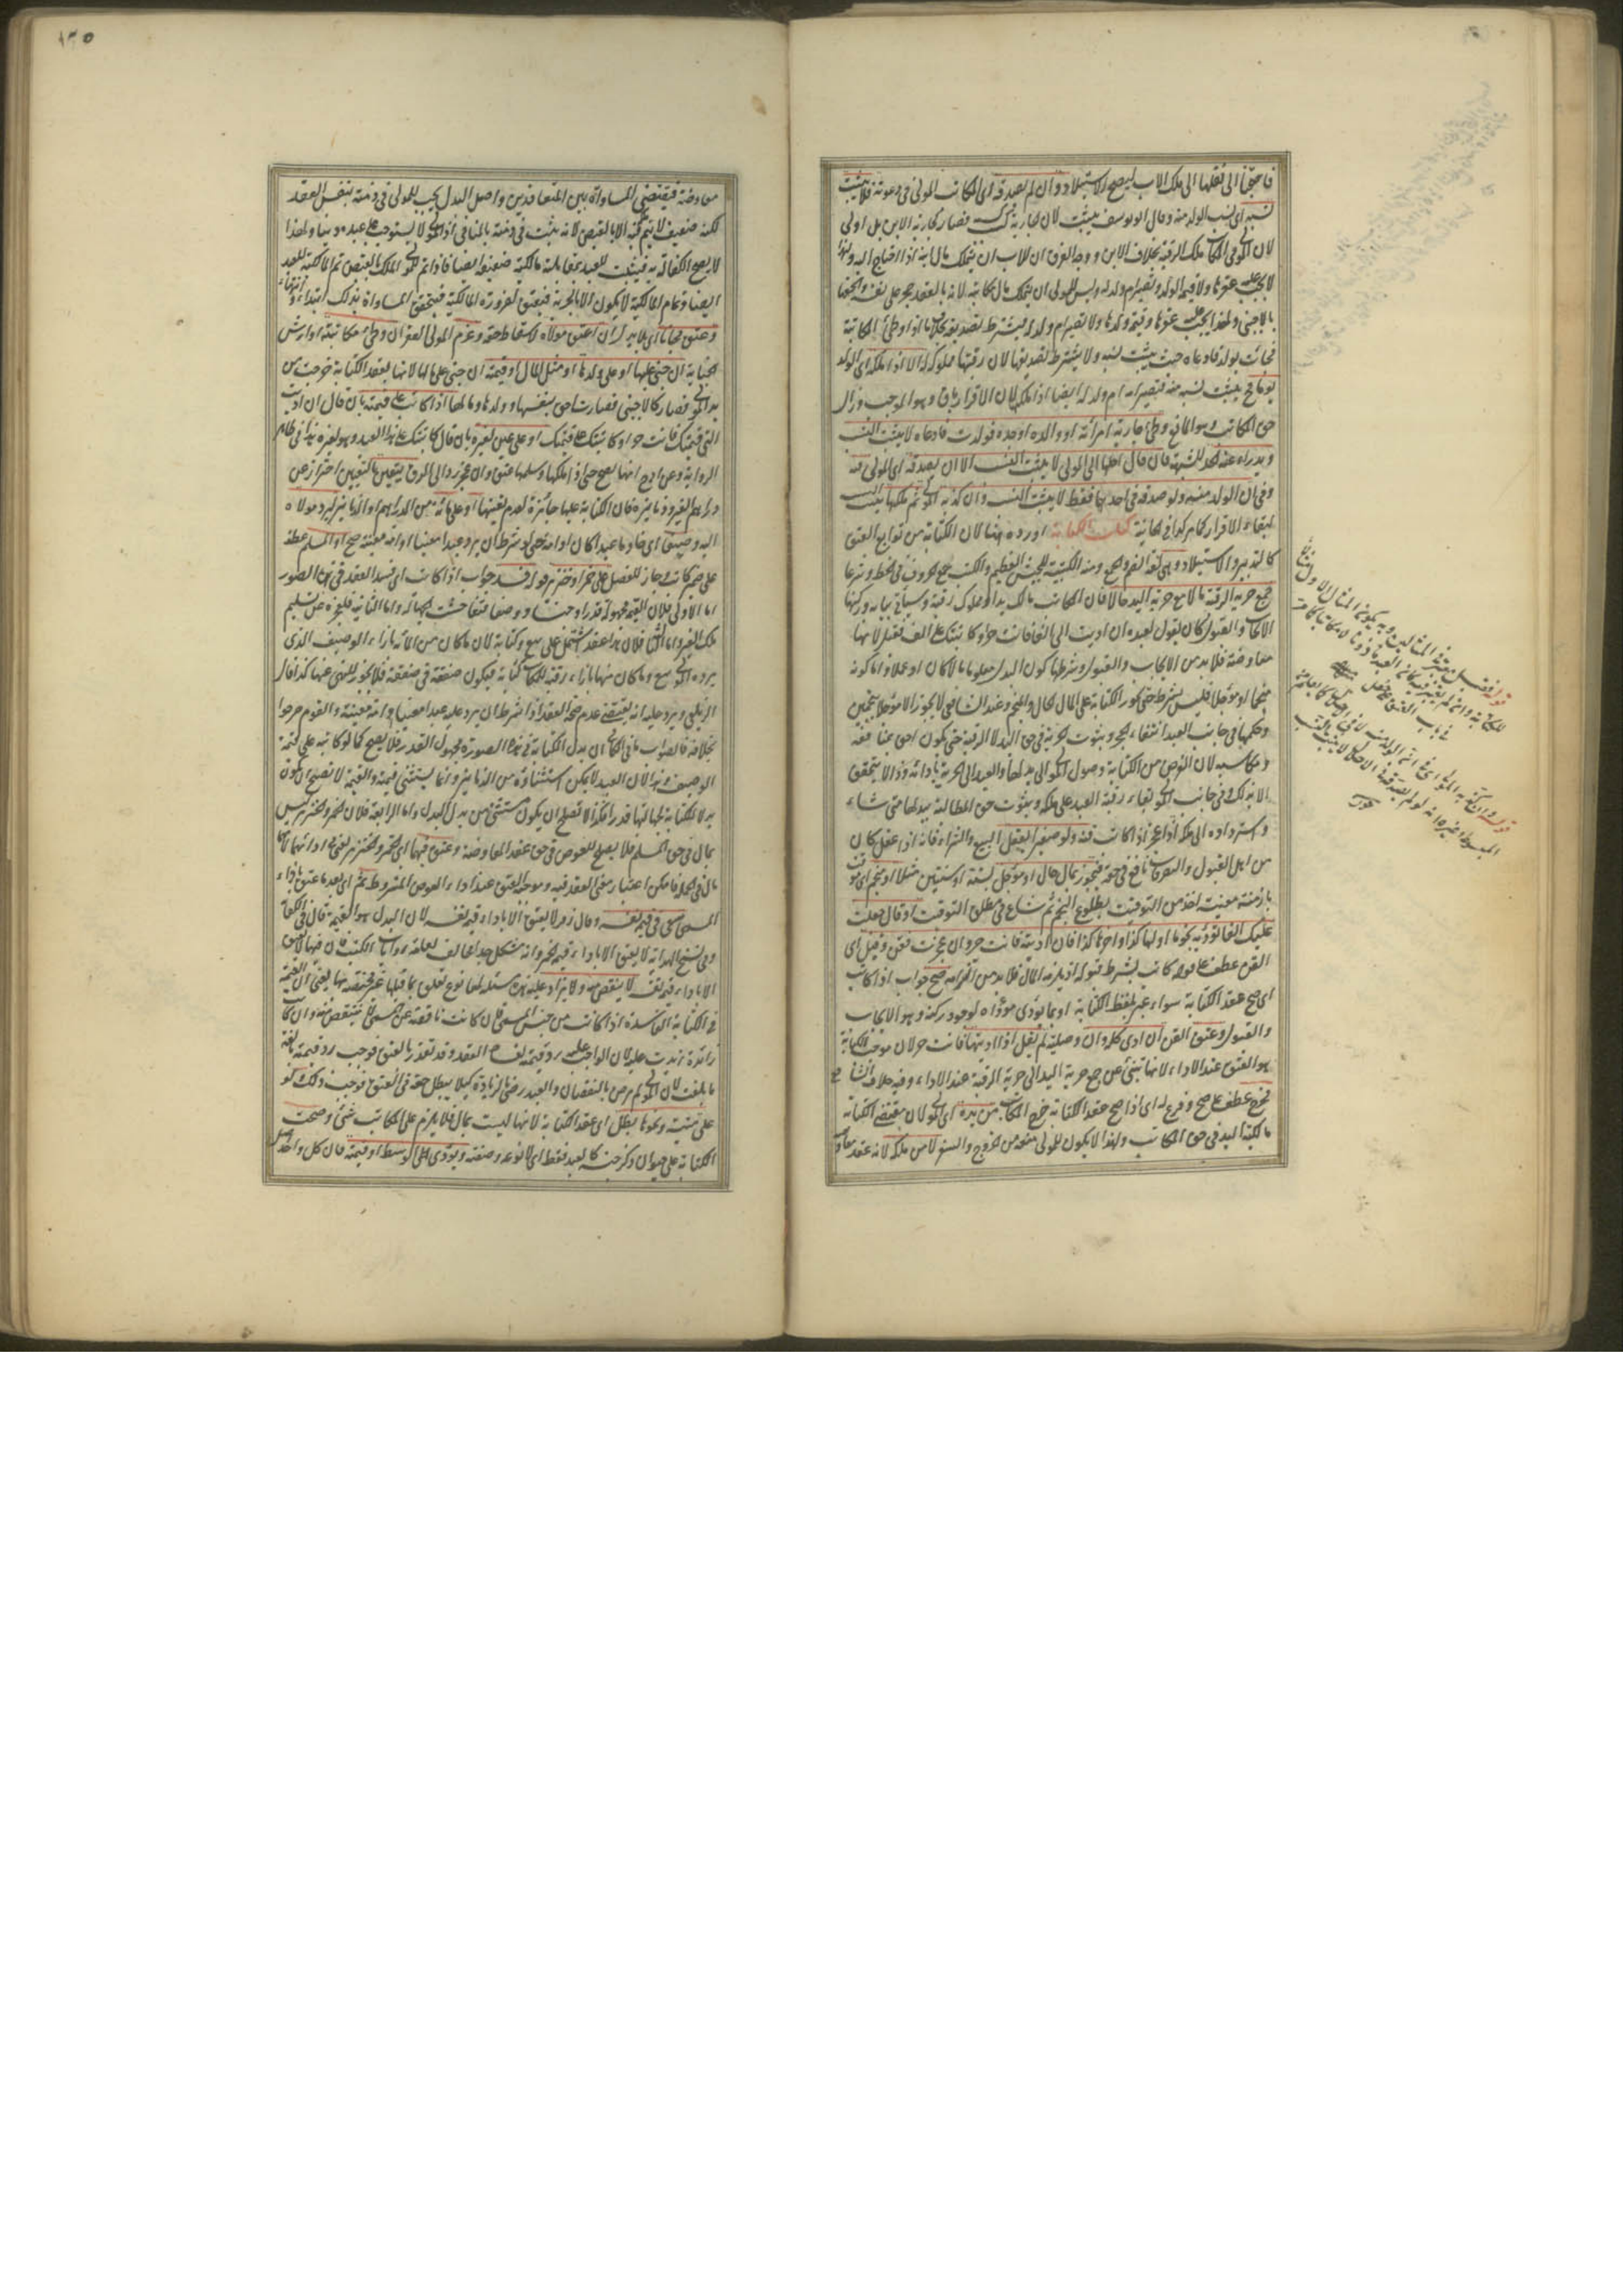 فاحتجنا الى نقلها الى ملك الاب ليصح الاستيلاد وان لم يصدقه اى المكاتب المولى فى دعوته فلا يثبت
نسبه اى نسب الولد منه وقال ابو يوسف يثبت لان الجارية كسب كسبه فصار كجارية الابن بل اولى
لان للمولى فى المكاتب ملك الرقبة بخلاف الابن ووجه الفرق ان للاب ان يتملك مال ابنه اذا احتاج اليه ولهذا
لا يجب عليه عقرها ولا قيمة الولد وتصير ام ولد له وليس للمولى ان يتملك مال مكاتبه لانه بالعقد حجر على نفسه والتحق
بالاجنبى ولهذا يجب عليه عقرها وقيمة ولدها ولا تصير ام ولد له فيشترط تصديقه بخلاف ما اذا وطئ المكاتبة
فجاءت بولد فادعاه حيث يثبت نسبه ولا يشترط تصديقها لان رقبتها مملوكة له الا اذا ملكه اى الولد
يوما فح يثبت نسبه منه فتصير امه ام ولد له ايضا اذا ملكها لان الاقرار باق وهو الموجب وزال
حق المكاتب وهو المانع وطئ جارية امرأته او والده او جده فولدت فادعاه لا يثبت النسب
ويدرأ عنه الحد للشبهة فان قال احلها الى المولى لا يثبت النسب الا ان يصدقه اى المولى فيه
وفى ان الولد منه ولو صدقه فى احدهما فقط لا يثبت النسب وان كذبه المولى ثم ملكها يثبت النسب
لبقاء الاقرار كما مر كذا فى الخانية كتاب الكتابة اورده هنا لان الكتابة من توابع العتق
كالتدبير والاستيلاد وهى لغة الضم والجمع ومنه الكتيبة للجيش العظيم والكتب جمع الحروف فى الخط وشرعا
جمع حرية الرقبة مآلا مع حرية اليد حالا فان المكاتب مالك يدا ومملوك رقبة وسيأتى بيانه وركنها
الايجاب والقبول كان يقول لعبده ان اديت الى الفا فانت حر او كاتبتك على الف فقبل لانها
معاوضة فلا بد من الايجاب والقبول وشرطها كون البدل معلوما مالا كان او عملا واما كونه
منجما او مؤجلا فليس بشرط حتى يجوز الكتابة على المال الحال والمنجم وعند الشافعى لا يجوز الا مؤجلا بنجمين
وحكمها فى جانب العبد انتفاء الحجر وثبوت الحرية فى حق اليد لا الرقبة حتى يكون احق بمنافعه
ومكاسبه لان الغرض من الكتابة وصول المولى الى بدلها والعبد الى الحرية بادائه وذا لا يتحقق
الا بذلك وفى جانب المولى بقاء رقبة العبد على ملكه وثبوت حق المطالبة ببدلها متى شاء
واسترداده الى ملكه اذا عجز اذا كاتب قنه ولو صغيرا يعقل البيع والشراء فانه اذا عقل كان
من اهل القبول والتصرف نافع فى حقه فيجوز بمال حال او مؤجل لسنة او سنتين مثلا او منجم اى موقت
بازمنة معينة اخذ من التوقيت بطلوع النجم ثم شاع فى مطلق التوقيت او قال جعلت
عليك الفا تؤديه نجوما اولها كذا واخرها كذا فان اديته فانت حر وان عجزت فقن وقبل اى
القن عطف على قوله كاتب بشرط قبوله اذ يلزمه المال فلا بد من التزامه صح جواب اذا كاتب
اى صح عقد الكتابة سواء عبر بلفظ الكتابة او بما يؤدى مؤداه لوجود ركنه وهو الايجاب
والقبول وعتق القن ان ادى كله وان وصلية لم يقل اذا اديتها فانت حر لان موجب الكتابة
هو العتق عند الاداء لانها تنبئ عن جمع حرية اليد الى حرية الرقبة عند الاداء وفيه خلاف الشافعى
فخرج عطف على صح وفرع له اى اذا صح عقد الكتابة خرج المكاتب من يده اى المولى لان مقتضى الكتابة
مالكية اليد فى حق المكاتب ولهذا لا يكون للمولى منعه من الخروج والسفر لا من ملكه لانه عقد معاوضة
١٣٥
معاوضة فيقتضى المساواة بين المتعاقدين واصل البدل يجب للمولى فى ذمته بنفس العقد
لكنه ضعيف لا يتم ملكه الا بالقبض لانه يثبت فى ذمته بالمنافى اذ المولى لا يستوجب على عبده دينا ولهذا
لا يصح الكفالة به فيثبت للعبد بمقابلته مالكية ضعيفة ايضا فاذا تم للمولى الملك بالقبض تم المالكية للعبد
ايضا وتمام المالكية لا يكون الا بالحرية فيعتق لضرورة المالكية فيتحقق المساواة بذلك ابتداء وانتهاء
وعتق مجانا اى بلا بدل ان اعتق مولاه لاسقاط حقه وغرم المولى العقر ان وطئ مكاتبته او ارش
الجناية ان جنى عليها او على ولدها او مثل المال او قيمته ان جنى على مالها لانها بعقد الكتابة خرجت من
يد المولى فصار كالاجنبى فصارت احق بنفسها وولدها ومالها اذا كاتب على قيمته بان قال ان اديت
الى قيمتك فانت حر او كاتبتك على قيمتك او على عين لغيره بان قال كاتبتك على هذا العبد وهو لغيره هذا فى ظاهر
الرواية وعن ابى ح انها تصح حتى اذا ملكها وسلمها عتق وان عجز رد الى الرق يتعين بالتعيين احتراز عن
دراهم الغير ودنانيره فان الكتابة عليها جائزة لعدم تعينها او على مائة من الدراهم او الدنانير ليرد مولاه
اليه وصيفا اى خادما عبدا كان او امة حتى لو شرط ان يرد عبدا معينا او امة معينة صح او المسلم عطف
على ضمير كاتب وجاز للفصل على خمر او خنزير قوله فسد جواب اذا كاتب اى فسد العقد فى هذه الصور
اما الاولى فلان القيمة مجهولة قدرا وجنسا ووصفا فتفاحشت الجهالة واما الثانية فلعجزه عن تسليم
ملك الغير واما الثالثة فلان هذا عقد اشتمل على بيع وكتابة لان ما كان من المائة بازاء الوصيف الذى
يرده المولى بيع وما كان منها بازاء رقبة المكاتب كتابة فيكون صفقة فى صفقة فلا يجوز للنهى عنها كذا قال
الزيلعى ويرد عليه انه يقتضى عدم صحة العقد اذا شرط ان يرد عليه عبدا معينا او امة معينة والقوم صرحوا
بخلافه فالصواب ما فى الكافى ان بدل الكتابة فى هذه الصورة مجهول القدر فلا يصح كما لو كاتبه على قيمة
الوصيف وهذا لان العبد لا يمكن استثناؤه من الدنانير وانما يستثنى قيمته والقيمة لا تصلح ان تكون
بدلا للكتابة لجهالتها قدرا فكذا لا تصلح ان يكون مستثنى من بدل الكتابة واما الرابعة فلان الخمر والخنزير ليس
بمال فى حق المسلم فلا يصلح للعوض فى حق عقد المعاوضة وعتق فيهما اى الخمر والخنزير يعنى اذا اداهما لانهما
مال فى الجملة فامكن اعتبار معنى العقد فيه وموجبه العتق عند اداء العوض المشروط ثم اى بعد ما عتق باداء
المسمى سعى فى قيمة نفسه وقال زفر لا يعتق الا باداء قيمة نفسه لان البدل هو القيمة قال فى الكفاية
وفى نسخ الهداية لا يعتق الا باداء قيمة الخمر وانه مشكل جدا مخالف لعامة روايات الكتب فان فيها لا يعتق
الا باداء قيمة نفسه لا ينقص منه ولا يزاد عليه هذه مسئلة لها نوع تعلق بما قبلها غير مختصة بها يعنى ان القيمة
فى الكتابة الفاسدة اذا كانت من جنس المسمى فان كانت ناقصة عن المسمى لا ينتقص منه وان كانت
زائدة زيدت عليه لان الواجب عليه رد قيمته لفساد العقد وقد تعذر بالعتق فوجب رد قيمته بالغة
ما بلغت لان المولى لم يرض بالنقصان والعبد رضى بالزيادة كيلا يبطل حقه فى العتق فوجب ذلك ولو
على ميتة ونحوها بطل اى عقد الكتابة لانها ليست بمال فلا يلزم على المكاتب شئ وصحت
الكتابة على حيوان ذكر جنسه كالعبد فقط اى لا نوعه وصفته ويؤدى الى الوسط او قيمته فان كل واحد اصل